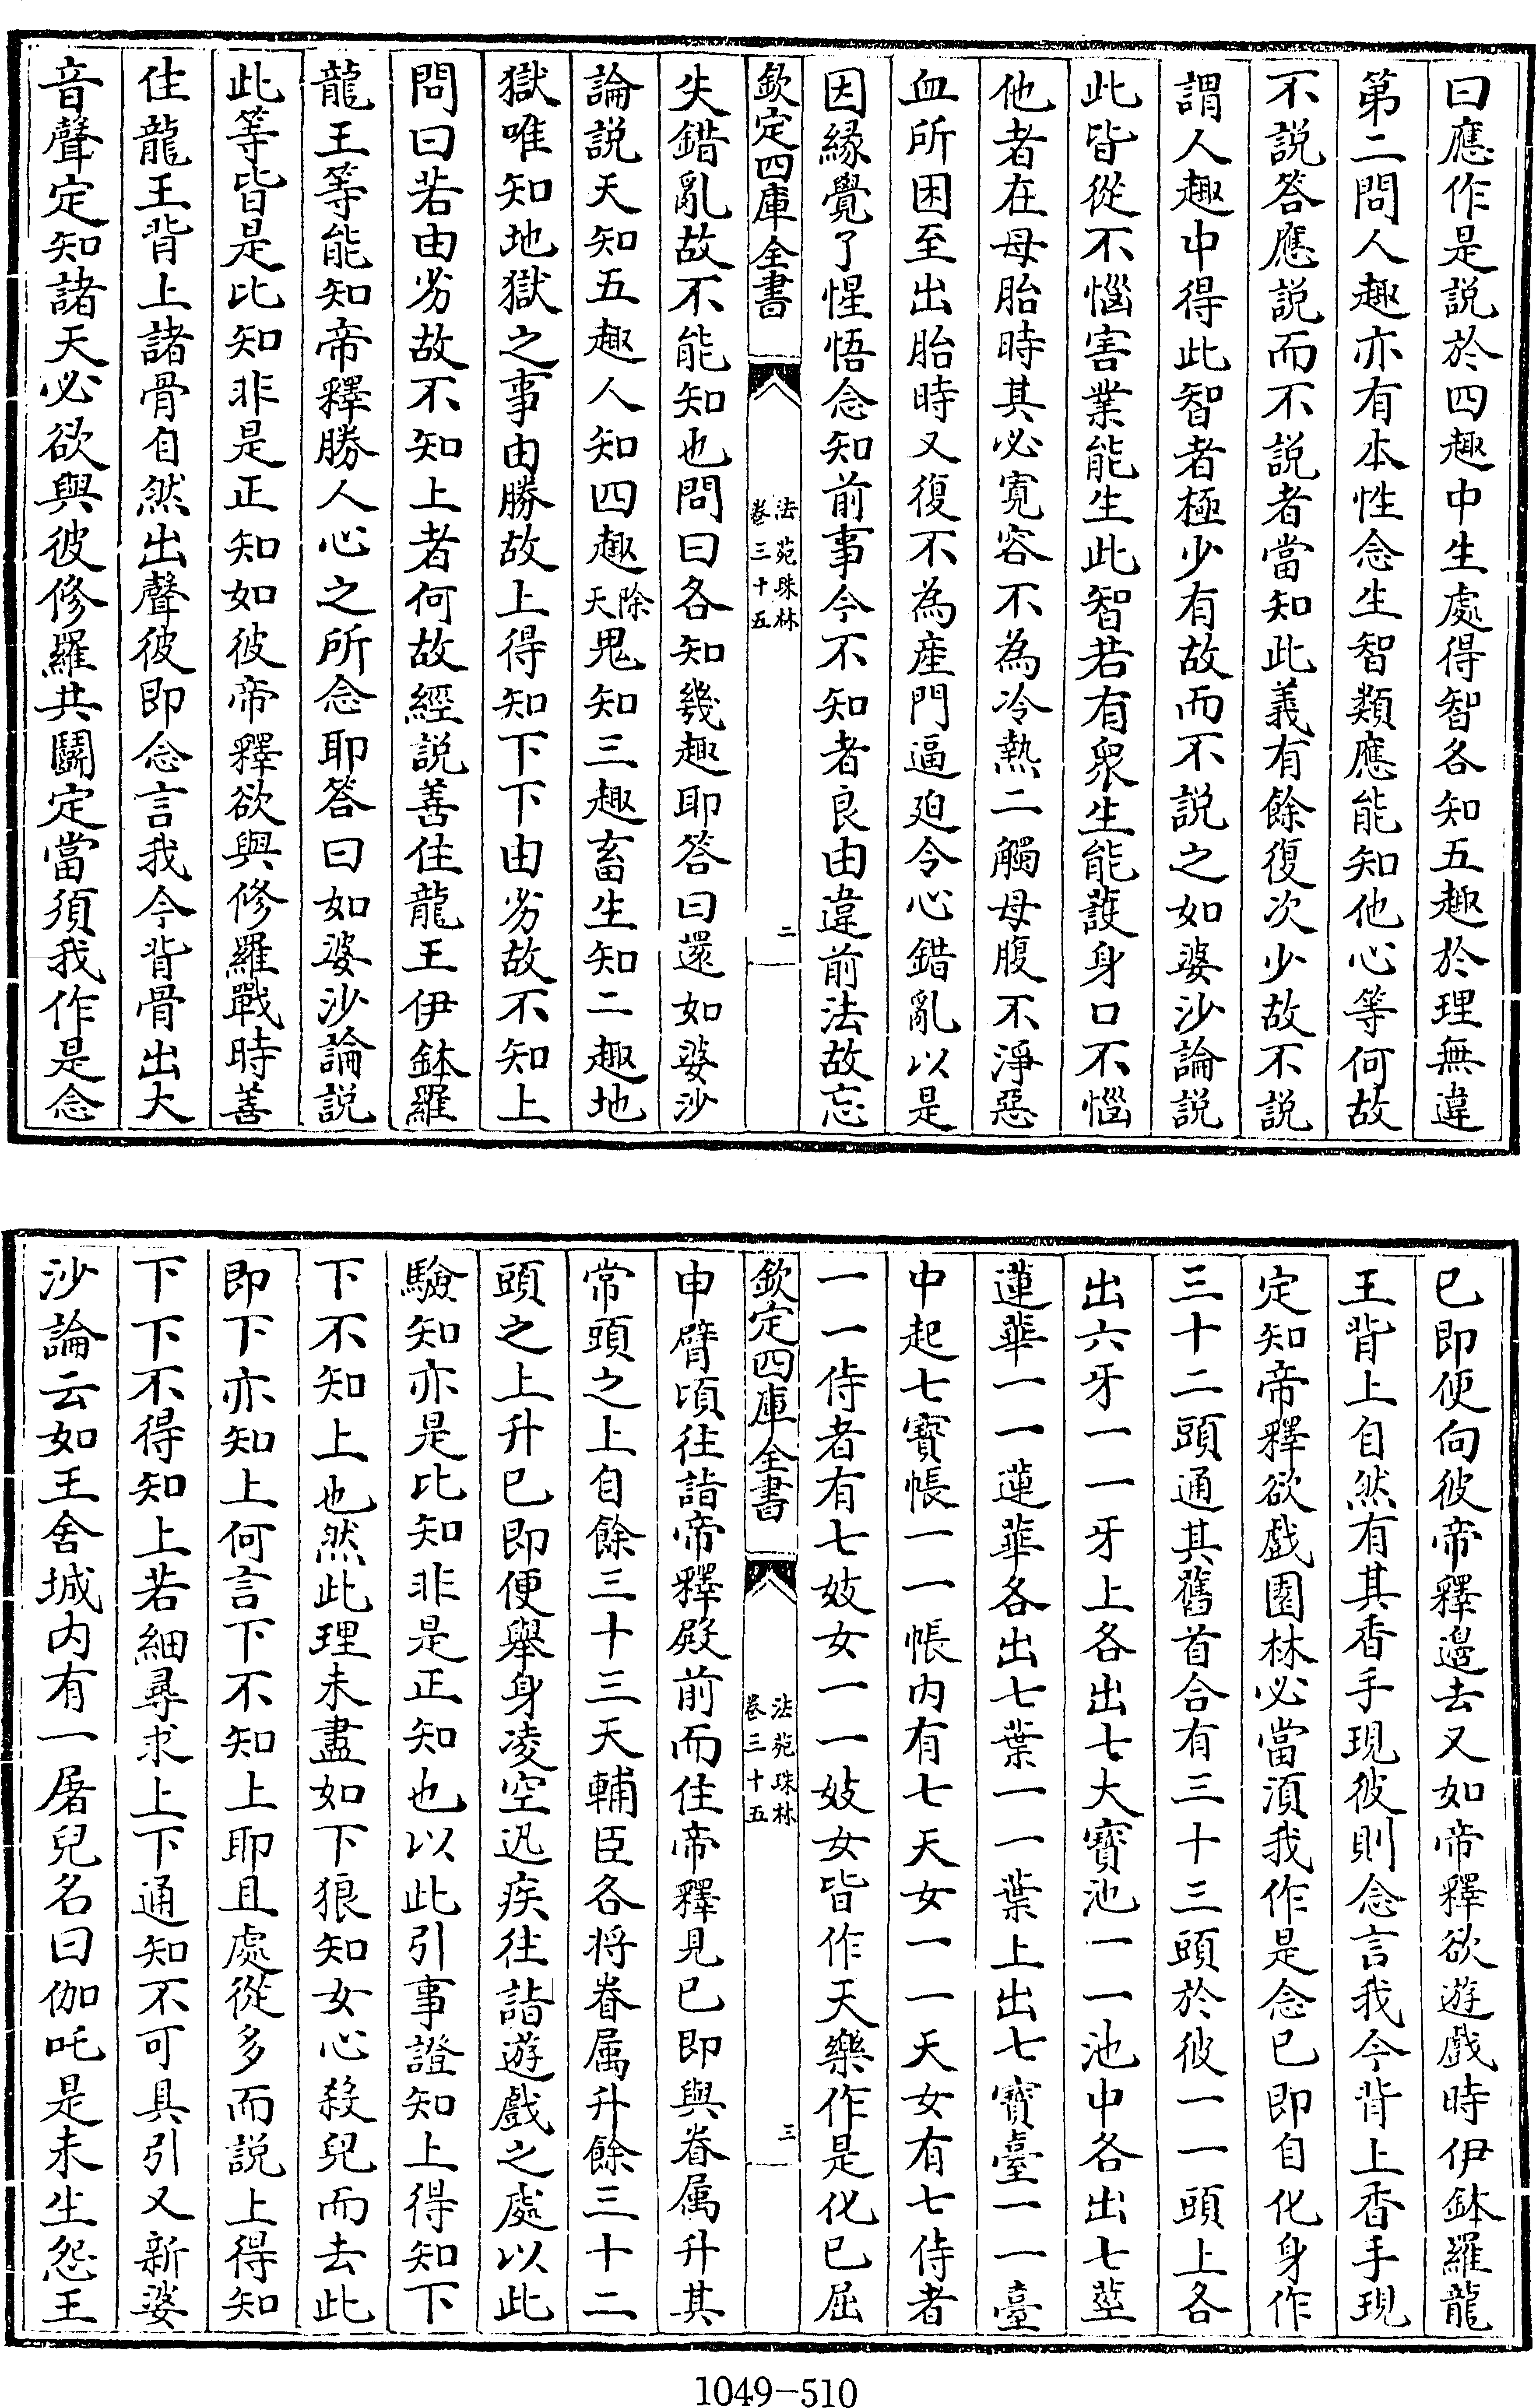 曰應作是説於四趣中生處得智各知五趣於理無違
第二問人趣亦有本性念生智類應能知他心等何故
不説答應説而不説者當知此義有餘復次少故不説
謂人趣中得此智者極少有故而不説之如婆沙論説
此皆從不惱害業能生此智若有衆生能護身口不惱
他者在母胎時其必寬容不為冷熱二觸母腹不淨惡
血所困至出胎時又復不為産門逼廹令心錯亂以是
因緣覺了惺悟念知前事今不知者良由違前法故忘
欽定四庫全書
法苑珠林
卷三十五
二
失錯亂故不能知也問曰各知幾趣耶答曰還如婆沙
論説天知五趣人知四趣除天鬼知三趣畜生知二趣地
獄唯知地獄之事由勝故上得知下下由劣故不知上
問曰若由劣故不知上者何故經説善住龍王伊鉢羅
龍王等能知帝釋勝人心之所念耶答曰如婆沙論説
此等皆是比知非是正知如彼帝釋欲與修羅戰時善
住龍王背上諸骨自然出聲彼即念言我今背骨出大
音聲定知諸天必欲與彼修羅共鬬定當須我作是念
已即便向彼帝釋邉去又如帝釋欲遊戲時伊鉢羅龍
王背上自然有其香手現彼則念言我今背上香手現
定知帝釋欲戲園林必當湏我作是念已即自化身作
三十二頭通其舊首合有三十三頭於彼一一頭上各
出六牙一一牙上各出七大寶池一一池中各出七莖
蓮華一一蓮華各出七葉一一葉上出七寶臺一一臺
中起七寶帳一一帳内有七天女一一天女有七侍者
一一侍者有七妓女一一妓女皆作天樂作是化已屈
欽定四庫全書
法苑珠林
卷三十五
三
申臂頃往詣帝釋殿前而住帝釋見已即與眷属升其
常頭之上自餘三十三天輔臣各将眷属升餘三十二
頭之上升已即便舉身凌空迅疾往詣遊戲之處以此
驗知亦是比知非是正知也以此引事證知上得知下
下不知上也然此理未盡如下狼知女心殺兒而去此
即下亦知上何言下不知上耶且處從多而説上得知
下下不得知上若細尋求上下通知不可具引又新婆
沙論云如王舍城内有一屠兒名曰伽吒是未生怨王
1049-510